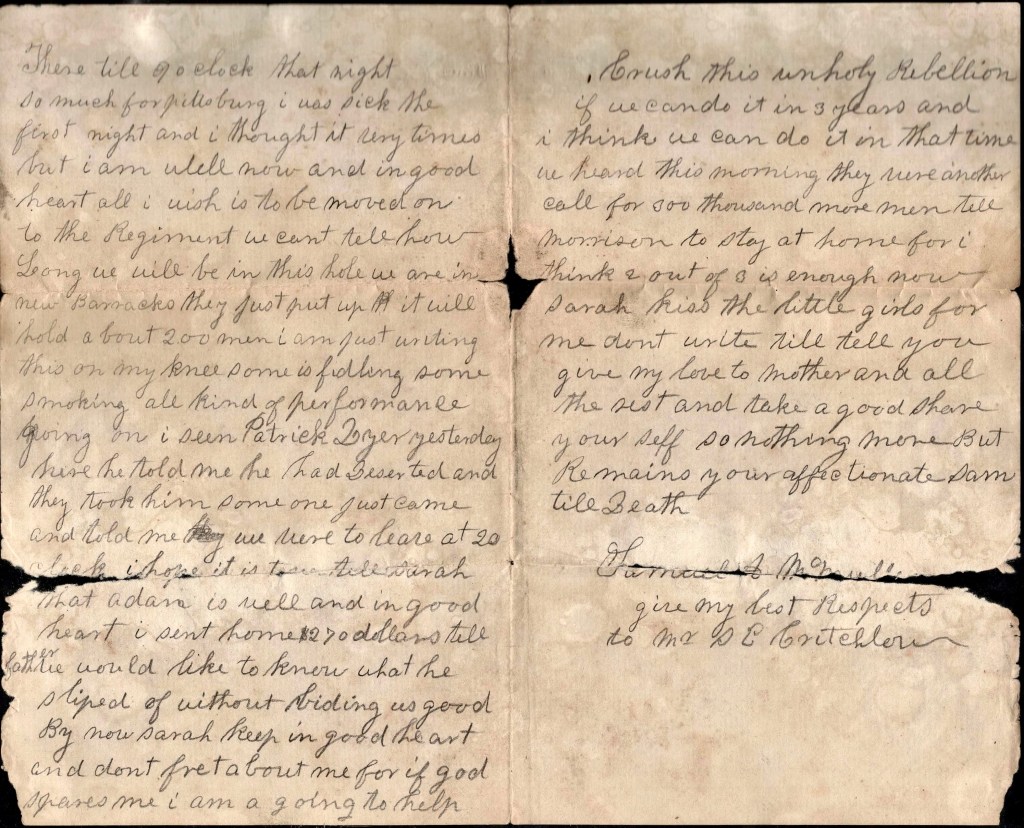 There till 9 oclock that night
so much for pittsburg i was sick the
first night and i thought it very times
but i am well now and in good
heart all i wish is to be moved on
to the Regiment we cant tell how
Long we will be in this hole we are in
new Barracks they just put up it will
hold about 200 men i am just writing
this on my knee some is fidling some
smoking all kind of performance
going on i seen Patrick Dyer yesterday
here he told me he had Deserted and
they took him some one just came
and told me we were to leave at 2 o
clock i hope it is true tell sarah
that adam is well and in good
heart i sent home $270 dollars tell
father we would like to know what he
sliped of without biding us good
By now sarah keep in good heart
and dont fret about me for if god
spares me i am a going to help
Crush this unholy Rebellion
if we can do it in 3 years and
i think we can do it in that time
we heard this morning they were another
call for 300 thousand more men tell
morrison to stay at home for i
think 2 out of 3 is enough now
sarah kiss the little girls for
me dont write till tell you
give my love to mother and all
the rest and take a good share
your self so nothing more But
Remains your affectionate Sam
till Death
Samuel
give my best Respects
to Mr S E Critchlow